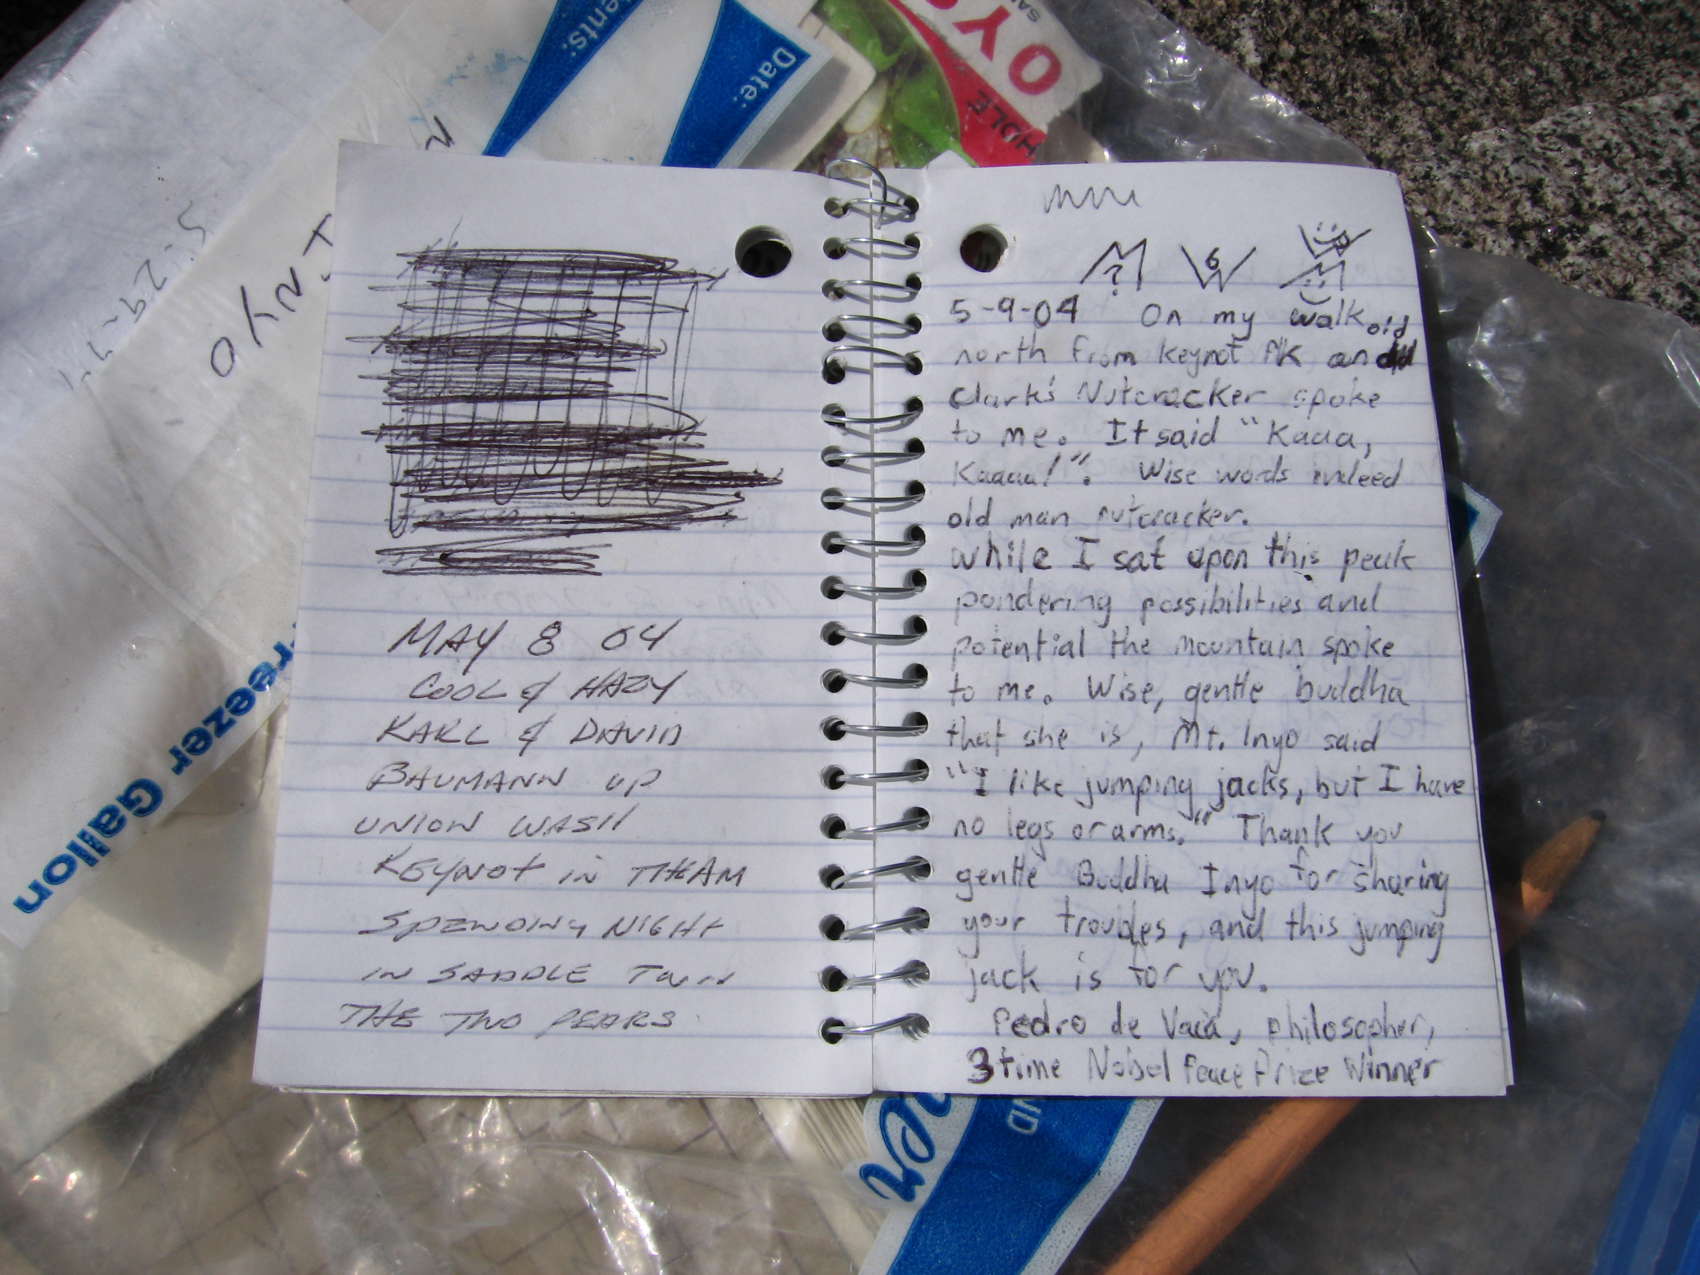 Date:
OYS
INYO
5-29-
Freezer Gallon
MAY 8 04
COOL & HAZY
KARL & DAVID
BAUMANN UP
UNION WASH
KEYNOT IN THE AM
SPENDING NIGHT
IN SADDLE TWIN
THE TWO PEARS
?
6
5-9-04 On my walk old
north from Keynot PK an
Clark's Nutcracker spoke
to me. It said "Kaaa,
Kaaaa!". Wise words indeed
old man nutcracker.
while I sat upon this peak
pondering possibilities and
potential the mountain spoke
to me. Wise, gentle buddha
that she is, Mt. Inyo said
"I like jumping jacks, but I have
no legs or arms." Thank you
gentle Buddha Inyo for sharing
your troubles, and this jumping
jack is for you.
Pedro de Vaca, philosopher,
3 time Nobel Peace Prize Winner